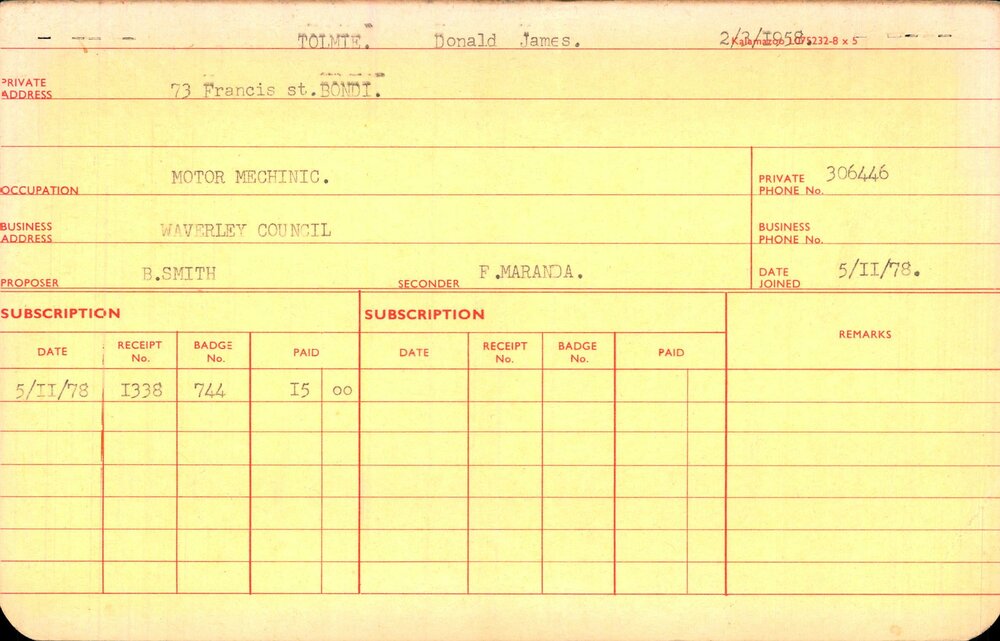 TOLMIE. Donald James. 2/3/I958. Kalamazoo 1075232-8 x 5
PRIVATE ADDRESS 73 Francis st. BONDI.
OCCUPATION MOTOR MECHINIC. PRIVATE PHONE No. 306446
BUSINESS ADDRESS WAVERLEY COUNCIL BUSINESS PHONE No.
PROPOSER B.SMITH SECONDER F.MARANDA. DATE JOINED 5/II/78.
SUBSCRIPTION SUBSCRIPTION REMARKS
DATE RECEIPT No. BADGE No. PAID DATE RECEIPT No. BADGE No. PAID
5/II/78 I338 744 I5 00